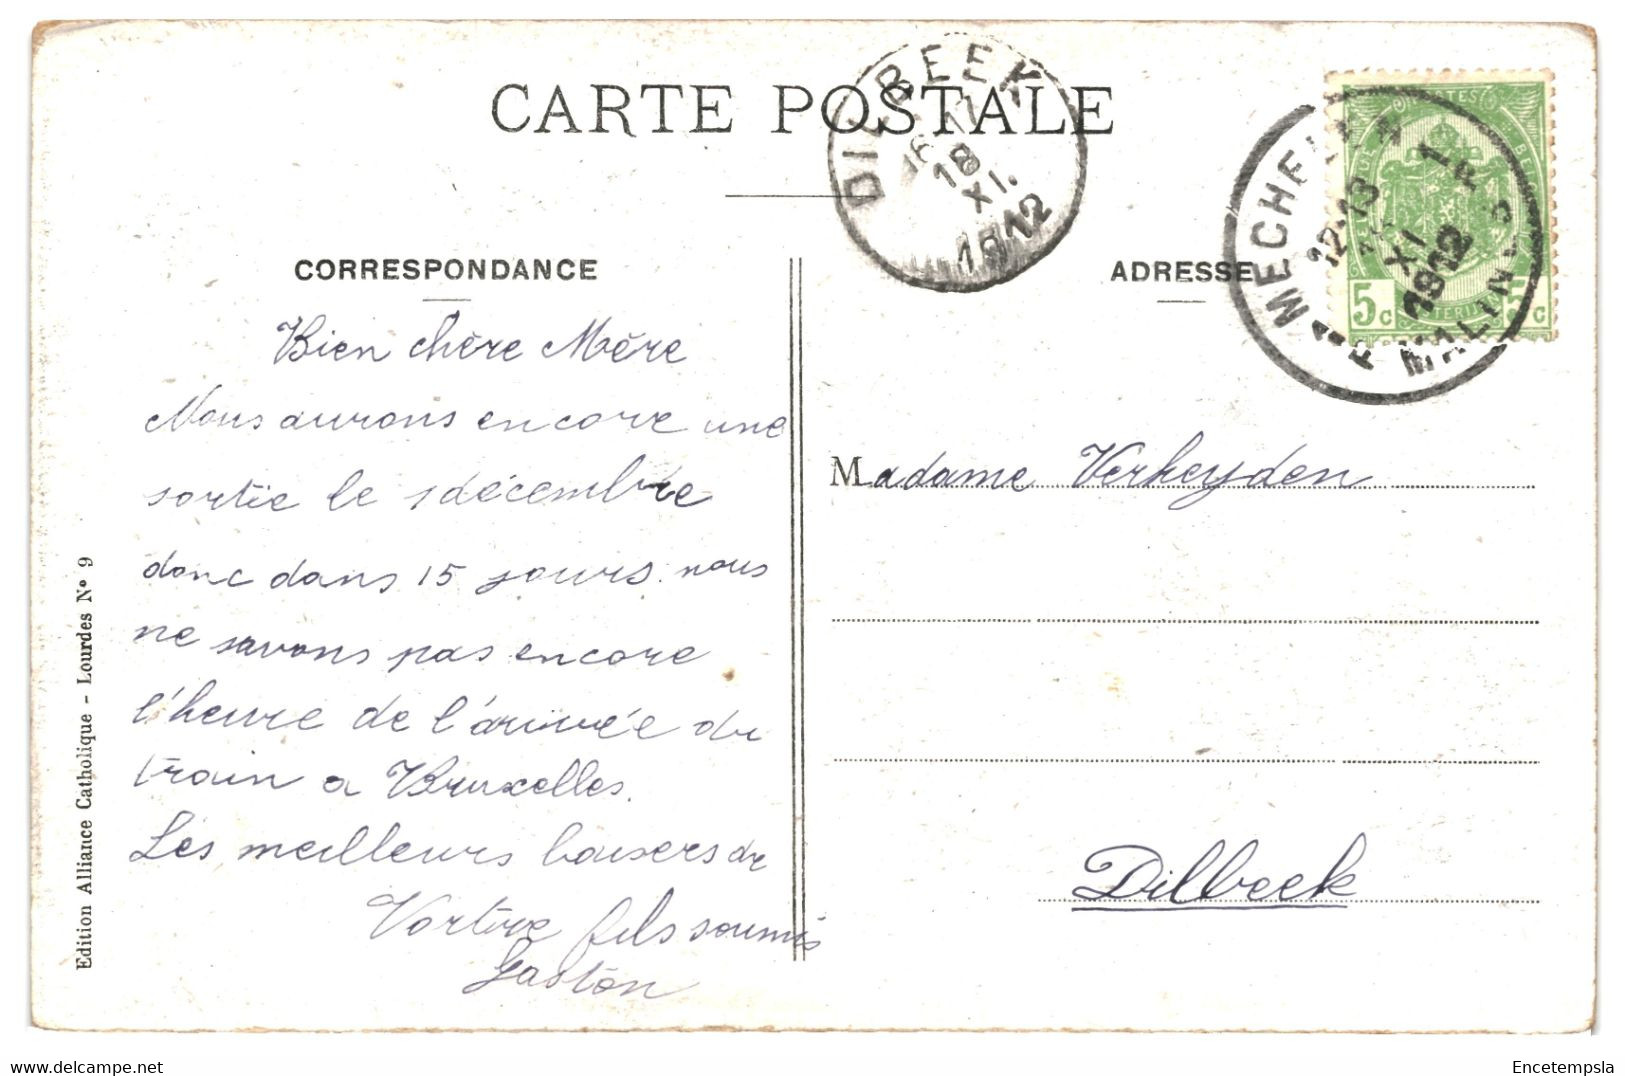 CARTE POSTALE
DILBEEK
18
XI.
1912
MECHELEN
12-13
XI
1912
MALINES
5c 5c
CORRESPONDANCE
ADRESSE
Bien chère Mère
Nous aurons encore une
sortie le 1 décembre
donc dans 15 jours. nous
ne savons pas encore
l'heure de l'arrivée du
train a Bruxelles.
Les meilleurs baisers de
Vortre fils soumis
Gaston
Madame Verheyden
Dilbeek
Edition Alliance Catholique - Lourdes Nº 9
Encetempsla